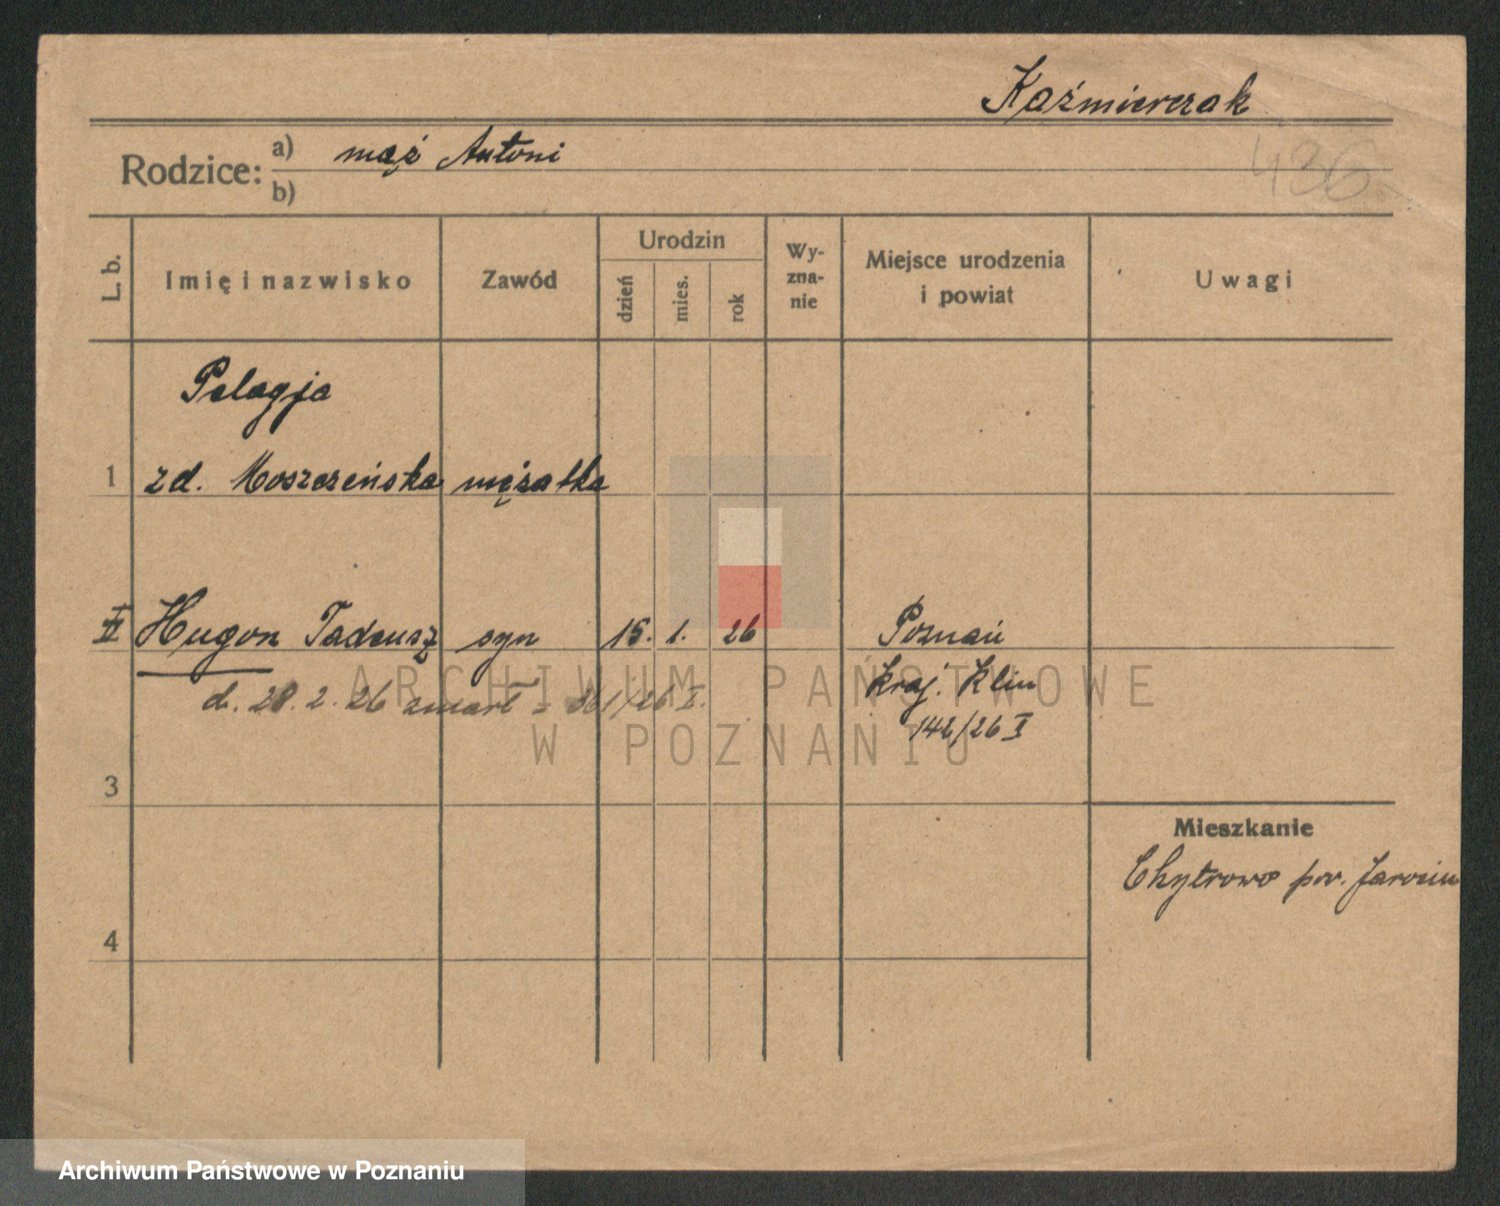 Kaźmierczak
436
Rodzice: a) mąż Antoni
b)
L. b.
Imię i nazwisko
Zawód
Urodzin
dzień
mies.
rok
Wy-
zna-
nie
Miejsce urodzenia
i powiat
Uwagi
Pelagja
1 zd. Moszczeńska mężatka
II Hugon Tadeusz syn 15. 1. 26 Poznań
d. 28. 2. 26 zmarł - 361/26 I. kraj. Klin
142/26 I
3
Mieszkanie
Chytrowo pow. Jarocin
4
ARCHIWUM PAŃSTWOWE
W POZNANIU
Archiwum Państwowe w Poznaniu